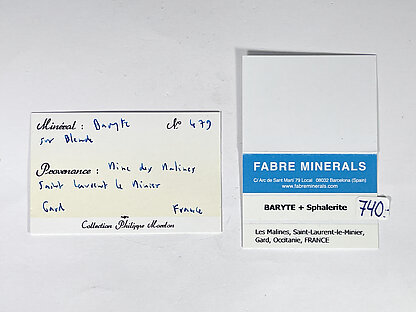 Minéral : Baryte N° 479
sur Blende
Provenance : Mine des Malines
Saint Laurent le Minier
Gard France
Collection Philippe Morelon
FABRE MINERALS
C/ Arc de Sant Martí 79 Local 08032 Barcelona (Spain)
www.fabreminerals.com
BARYTE + Sphalerite 740.-
Les Malines, Saint-Laurent-le-Minier,
Gard, Occitanie, FRANCE